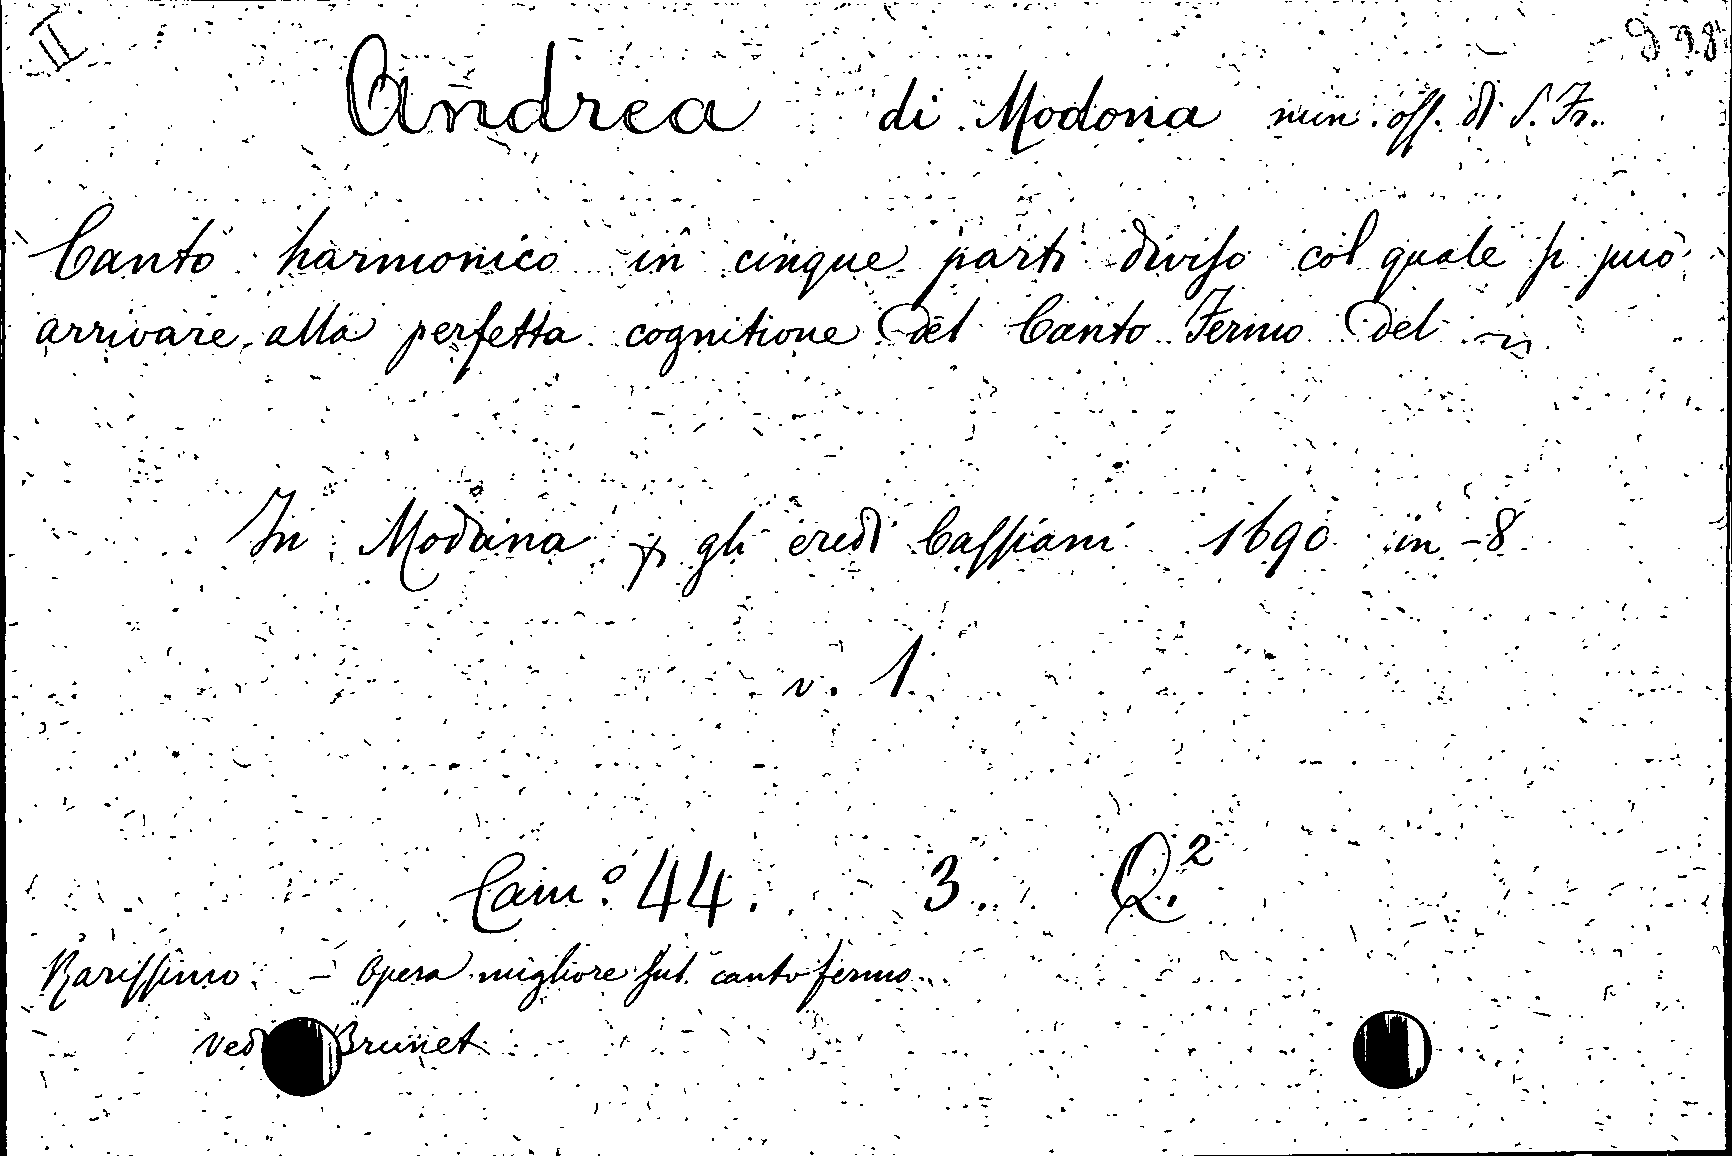 II
Andrea di Modona min. oss. di S. Fr.
Canto harmonico in cinque parti diviso col quale si può
arrivare alla perfetta cognitione del Canto Fermo del
In Modana p gli eredi Cassiani 1690 in-8
v. 1.
Cam.º 44. 3. Q.²
Rarissimo. - Opera migliore sul canto fermo.
Ved Brunet